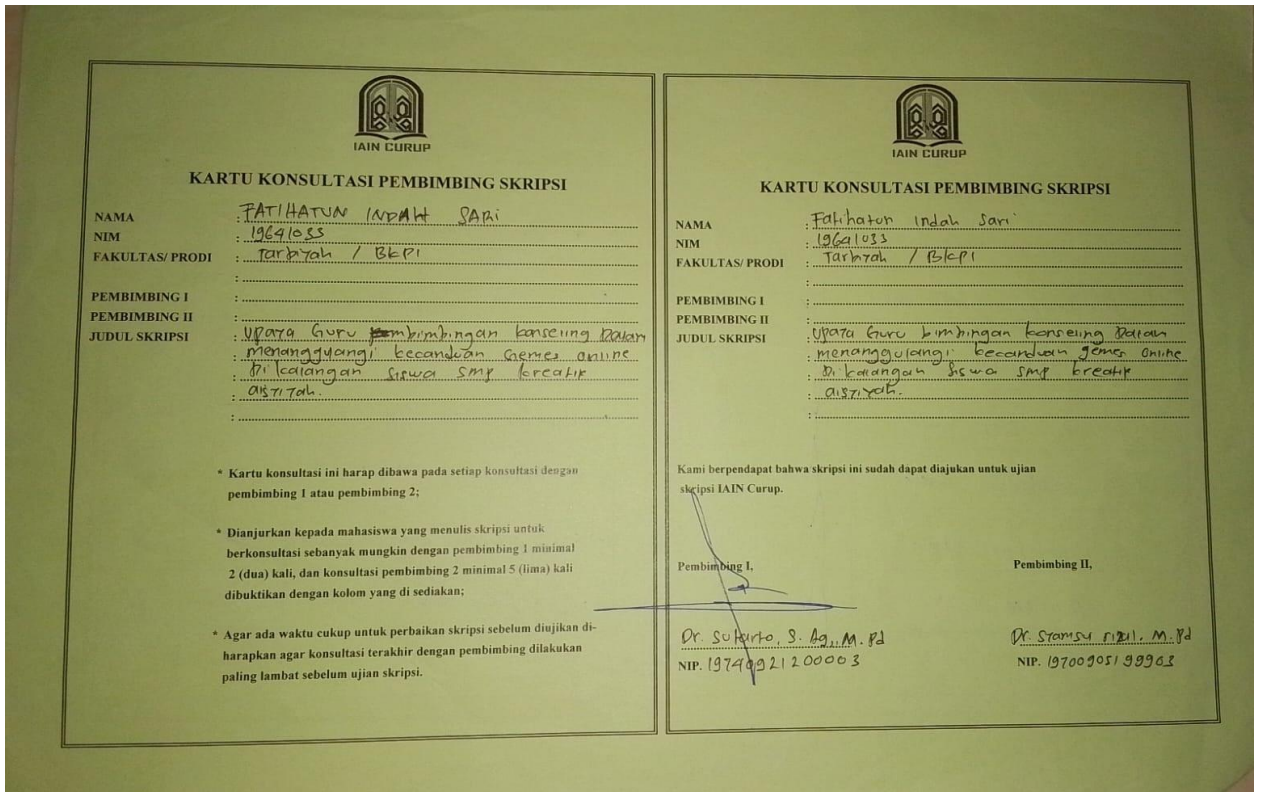 IAIN CURUP
KARTU KONSULTASI PEMBIMBING SKRIPSI
NAMA : FATIHATUN INDAH SARI
NIM : 19641033
FAKULTAS/ PRODI : Tarbiyah / BKPI
:
PEMBIMBING I :
PEMBIMBING II :
JUDUL SKRIPSI : Upaya Guru bimbingan konseling Dalam
: menanggulangi kecanduan Gemes online
: Di kalangan siswa smp kreatif
: aisyiyah.
:
* Kartu konsultasi ini harap dibawa pada setiap konsultasi dengan
pembimbing 1 atau pembimbing 2;
* Dianjurkan kepada mahasiswa yang menulis skripsi untuk
berkonsultasi sebanyak mungkin dengan pembimbing 1 minimal
2 (dua) kali, dan konsultasi pembimbing 2 minimal 5 (lima) kali
dibuktikan dengan kolom yang di sediakan;
* Agar ada waktu cukup untuk perbaikan skripsi sebelum diujikan di-
harapkan agar konsultasi terakhir dengan pembimbing dilakukan
paling lambat sebelum ujian skripsi.
IAIN CURUP
KARTU KONSULTASI PEMBIMBING SKRIPSI
NAMA : Fatihatun Indah Sari
NIM : 19641033
FAKULTAS/ PRODI : Tarbiyah / BKPI
:
PEMBIMBING I :
PEMBIMBING II :
JUDUL SKRIPSI : Upaya Guru bimbingan konseling Dalam
: menanggulangi kecanduan gemes online
: Di kalangan siswa smp kreatif
: aisyiyah.
:
Kami berpendapat bahwa skripsi ini sudah dapat diajukan untuk ujian
skripsi IAIN Curup.
Pembimbing I, Pembimbing II,
Dr. Sutarto, S. Ag,. M. Pd Dr. Syamsu rizal, M. Pd
NIP. 1974092120003 NIP. 19700905199903